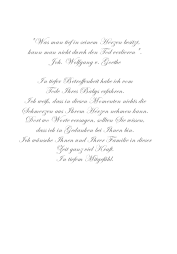 "Was man tief in seinem Herzen besitzt,
kann man nicht durch den Tod verlieren."
Joh. Wolfgang v. Goethe
In tiefer Betroffenheit habe ich vom
Tode Ihres Babys erfahren.
Ich weiß, dass in diesen Momenten nichts die
Schmerzen aus Ihrem Herzen nehmen kann.
Dort wo Worte versagen, sollten Sie wissen,
dass ich in Gedanken bei Ihnen bin.
Ich wünsche Ihnen und Ihrer Familie in dieser
Zeit ganz viel Kraft.
In tiefem Mitgefühl.